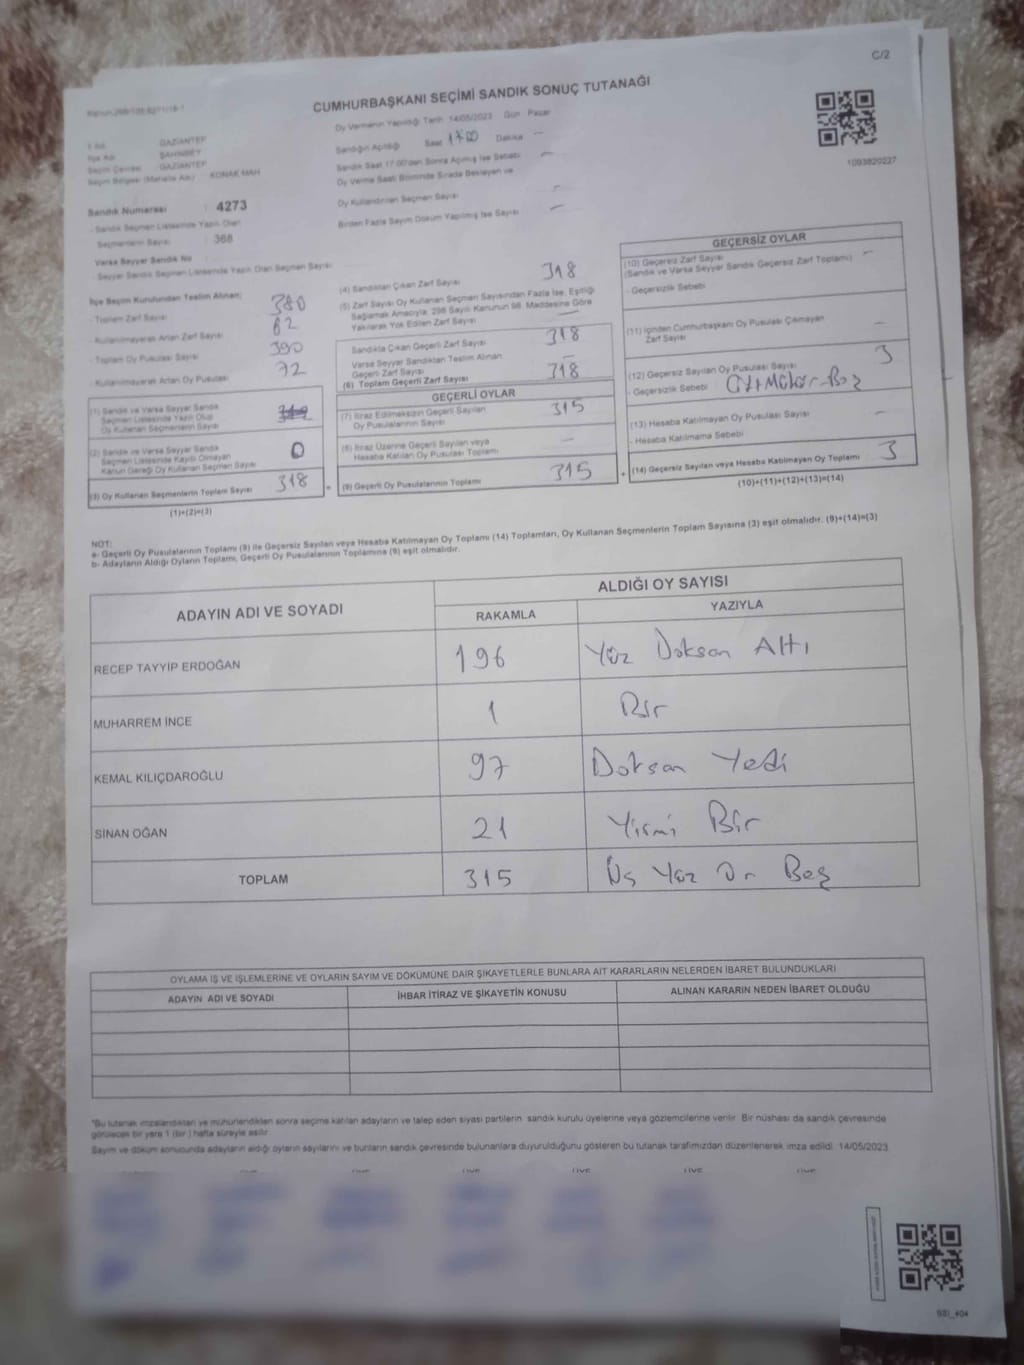 C/2
CUMHURBAŞKANI SEÇİMİ SANDIK SONUÇ TUTANAĞI
İl Adı GAZİANTEP
İlçe Adı ŞAHİNBEY
Seçim Çevresi GAZİANTEP
Seçim Bölgesi (Mahalle Adı) KONAK MAH
Sandık Numarası : 4273
- Sandık Seçmen Listesinde Yazılı Olan
Seçmenlerin Sayısı : 368
Varsa Seyyar Sandık No :
- Seyyar Sandık Seçmen Listesinde Yazılı Olan Seçmen Sayısı
Oy Vermenin Yapıldığı Tarih 14/05/2023 Gün Pazar
Sandığın Açıldığı Saat 17:00 Dakika —
Sandık Saat 17:00'den Sonra Açılmış İse Sebebi —
Oy Verme Saati Bitiminde Sırada Bekleyen ve
Oy Kullandırılan Seçmen Sayısı —
Birden Fazla Sayım Döküm Yapılmış İse Sayısı —
1093820227
İlçe Seçim Kurulundan Teslim Alınan;
- Toplam Zarf Sayısı 380
- Kullanılmayarak Artan Zarf Sayısı 62
- Toplam Oy Pusulası Sayısı 390
- Kullanılmayarak Artan Oy Pusulası 72
(1) Sandık ve Varsa Seyyar Sandık
Seçmen Listesinde Yazılı Olup
Oy Kullanan Seçmenlerin Sayısı
(2) Sandık ve Varsa Seyyar Sandık
Seçmen Listesinde Kayıtlı Olmayan
Kanun Gereği Oy Kullanan Seçmen Sayısı 0
(3) Oy Kullanan Seçmenlerin Toplam Sayısı 318
(1)+(2)=(3)
(4) Sandıktan Çıkan Zarf Sayısı 318
(5) Zarf Sayısı Oy Kullanan Seçmen Sayısından Fazla İse, Eşitliği
Sağlamak Amacıyla; 298 Sayılı Kanunun 98. Maddesine Göre
Yakılarak Yok Edilen Zarf Sayısı —
Sandıkta Çıkan Geçerli Zarf Sayısı 318
Varsa Seyyar Sandıktan Teslim Alınan
Geçerli Zarf Sayısı —
(6) Toplam Geçerli Zarf Sayısı 318
GEÇERLİ OYLAR
(7) İtiraz Edilmeksizin Geçerli Sayılan
Oy Pusulalarının Sayısı 315
(8) İtiraz Üzerine Geçerli Sayılan veya
Hesaba Katılan Oy Pusulası Toplamı —
(9) Geçerli Oy Pusulalarının Toplamı 315
GEÇERSİZ OYLAR
(10) Geçersiz Zarf Sayısı
(Sandık ve Varsa Seyyar Sandık Geçersiz Zarf Toplamı) —
- Geçersizlik Sebebi
(11) İçinden Cumhurbaşkanı Oy Pusulası Çıkmayan
Zarf Sayısı —
(12) Geçersiz Sayılan Oy Pusulası Sayısı 3
- Geçersizlik Sebebi Boş
(13) Hesaba Katılmayan Oy Pusulası Sayısı —
- Hesaba Katılmama Sebebi
(14) Geçersiz Sayılan veya Hesaba Katılmayan Oy Toplamı 3
(10)+(11)+(12)+(13)=(14)
NOT:
a- Geçerli Oy Pusulalarının Toplamı (9) ile Geçersiz Sayılan veya Hesaba Katılmayan Oy Toplamı (14) Toplamları, Oy Kullanan Seçmenlerin Toplam Sayısına (3) eşit olmalıdır. (9)+(14)=(3)
b- Adayların Aldığı Oyların Toplamı, Geçerli Oy Pusulalarının Toplamına (9) eşit olmalıdır.
ADAYIN ADI VE SOYADI ALDIĞI OY SAYISI
RAKAMLA YAZIYLA
RECEP TAYYİP ERDOĞAN 196 Yüz Doksan Altı
MUHARREM İNCE 1 Bir
KEMAL KILIÇDAROĞLU 97 Doksan Yedi
SİNAN OĞAN 21 Yirmi Bir
TOPLAM 315 Üç Yüz On Beş
OYLAMA İŞ VE İŞLEMLERİNE VE OYLARIN SAYIM VE DÖKÜMÜNE DAİR ŞİKAYETLERLE BUNLARA AİT KARARLARIN NELERDEN İBARET BULUNDUKLARI
ADAYIN ADI VE SOYADI İHBAR İTİRAZ VE ŞİKAYETİN KONUSU ALINAN KARARIN NEDEN İBARET OLDUĞU
*Bu tutanak imzalandıktan ve mühürlendikten sonra seçime katılan adayların ve talep eden siyasi partilerin sandık kurulu üyelerine veya gözlemcilerine verilir. Bir nüshası da sandık çevresinde
görülecek bir yere 1 (bir ) hafta süreyle asılır.
Sayım ve döküm sonucunda adayların aldığı oyların sayılarını ve bunların sandık çevresinde bulunanlara duyurulduğunu gösteren bu tutanak tarafımızdan düzenlenerek imza edildi. 14/05/2023
SSI_404